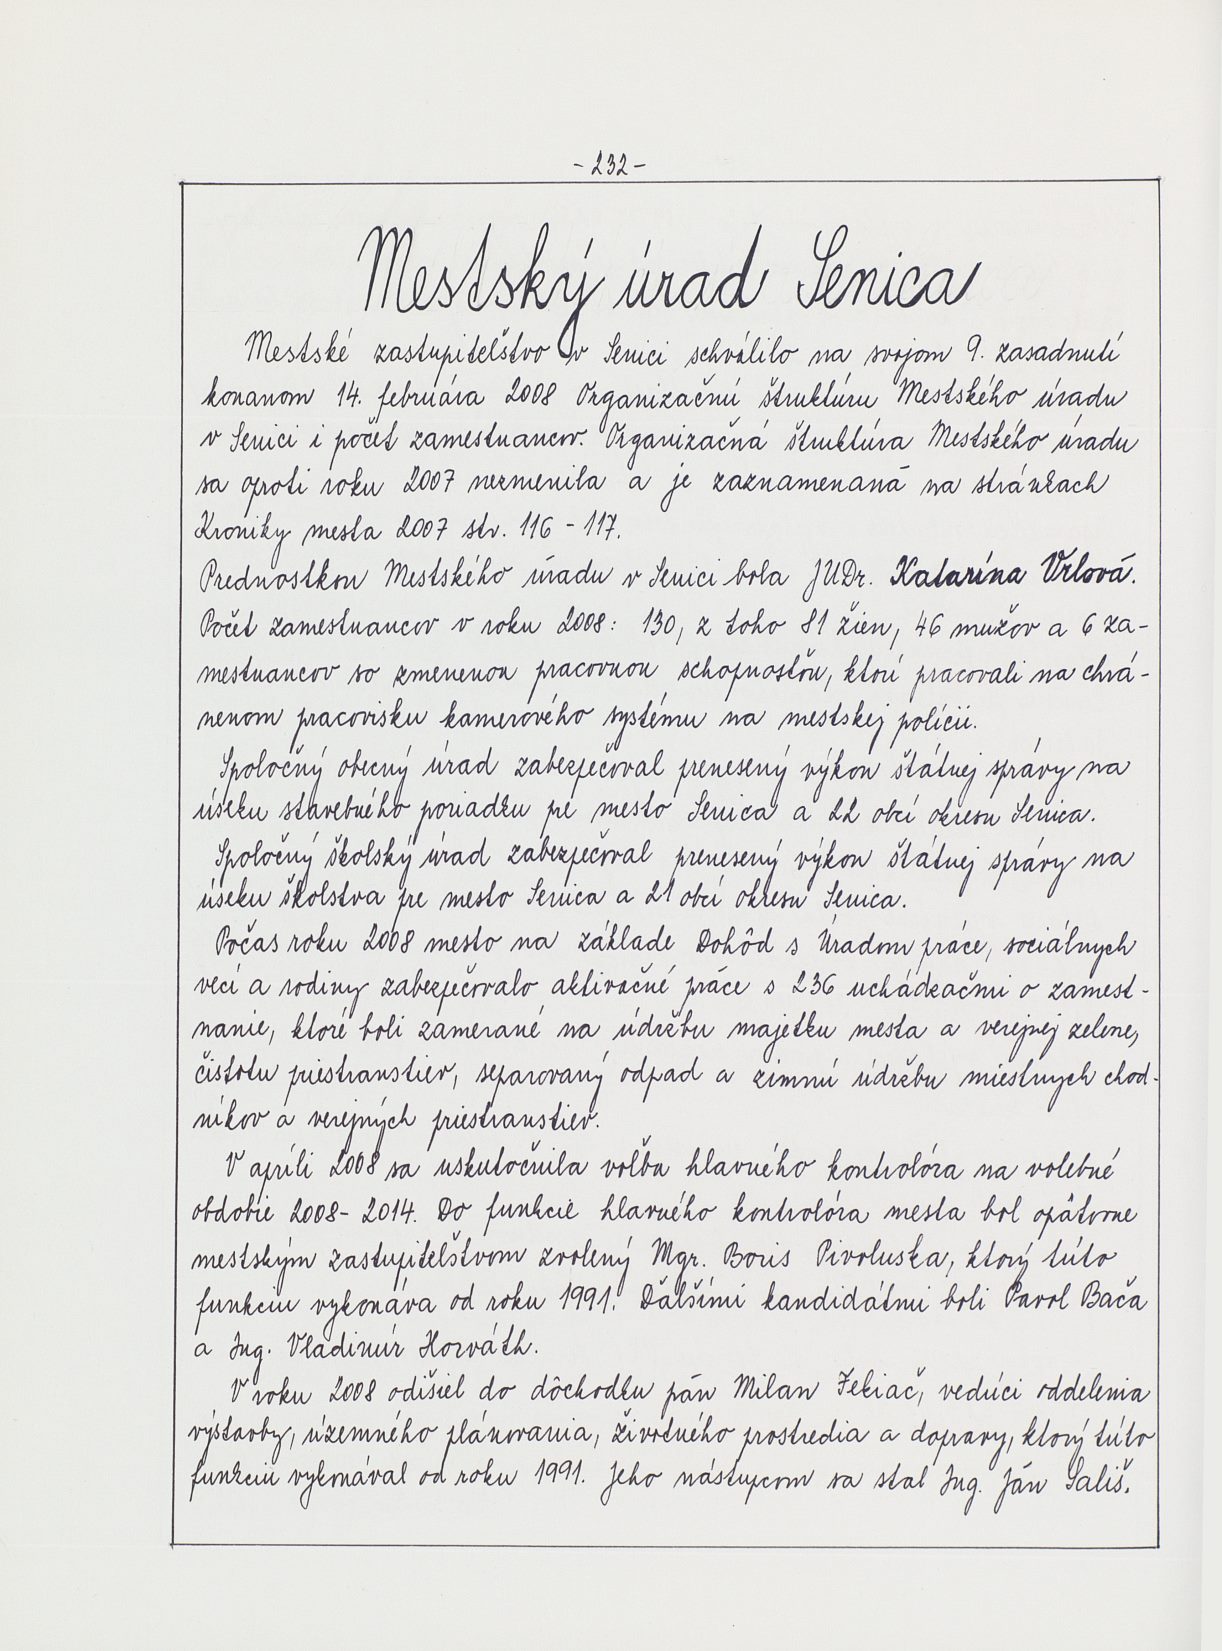 - 232 -
Mestský úrad Senica
Mestské zastupiteľstvo v Senici schválilo na svojom 9. zasadnutí
konanom 14. februára 2008 Organizačnú štruktúru Mestského úradu
v Senici i počet zamestnancov. Organizačná štruktúra Mestského úradu
sa oproti roku 2007 nezmenila a je zaznamenaná na stránkach
Kroniky mesta 2007 str. 116 - 117.
Prednostkou Mestského úradu v Senici bola JUDr. Katarína Vrlová.
Počet zamestnancov v roku 2008: 130, z toho 81 žien, 46 mužov a 6 za-
mestnancov so zmenenou pracovnou schopnosťou, ktorí pracovali na chrá-
nenom pracovisku kamerového systému na mestskej polícii.
Spoločný obecný úrad zabezpečoval prenesený výkon štátnej správy na
úseku stavebného poriadku pre mesto Senica a 22 obcí okresu Senica.
Spoločný školský úrad zabezpečoval prenesený výkon štátnej správy na
úseku školstva pre mesto Senica a 21 obcí okresu Senica.
Počas roku 2008 mesto na základe Dohôd s Úradom práce, sociálnych
vecí a rodiny zabezpečovalo aktivačné práce s 236 uchádzačmi o zamest-
nanie, ktoré boli zamerané na údržbu majetku mesta a verejnej zelene,
čistotu priestranstiev, separovaný odpad a zimnú údržbu miestnych chod-
níkov a verejných priestranstiev.
V apríli 2008 sa uskutočnila voľba hlavného kontrolóra na volebné
obdobie 2008- 2014. Do funkcie hlavného kontrolóra mesta bol opätovne
mestským zastupiteľstvom zvolený Mgr. Boris Pivoluska, ktorý túto
funkciu vykonáva od roku 1991. Ďalšími kandidátmi boli Pavol Bača
a Ing. Vladimír Horváth.
V roku 2008 odišiel do dôchodku pán Milan Jekiač, vedúci oddelenia
výstavby, územného plánovania, životného prostredia a dopravy, ktorý túto
funkciu vykonával od roku 1991. Jeho nástupcom sa stal Ing. Ján Sališ.